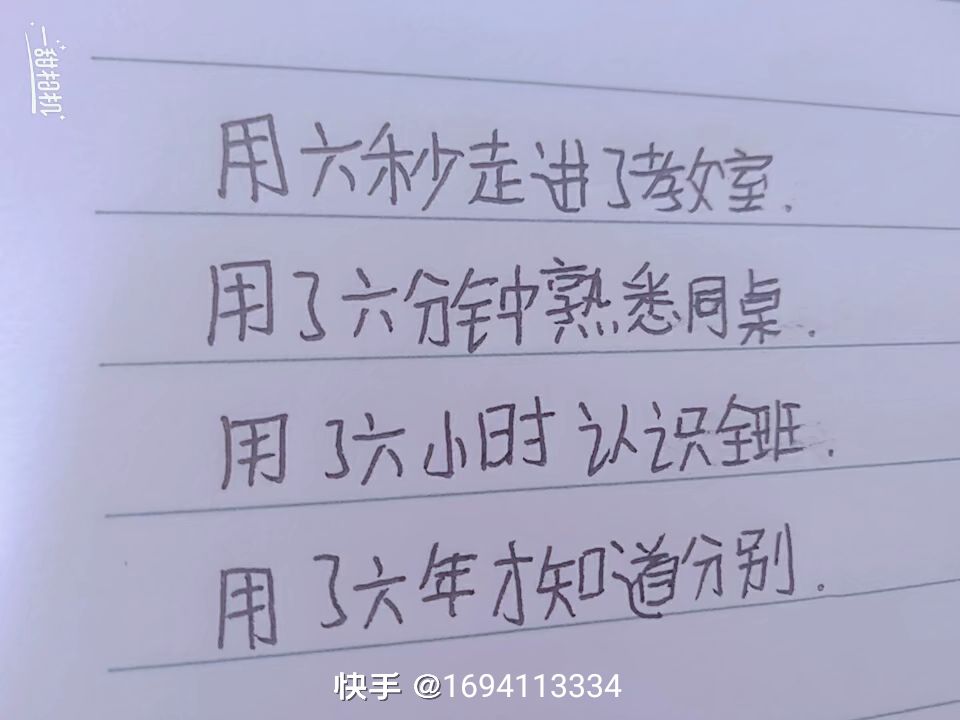 一甜相机
用六秒走进了教室.
用了六分钟熟悉同桌.
用了六小时认识全班.
用了六年才知道分别.
快手 @1694113334